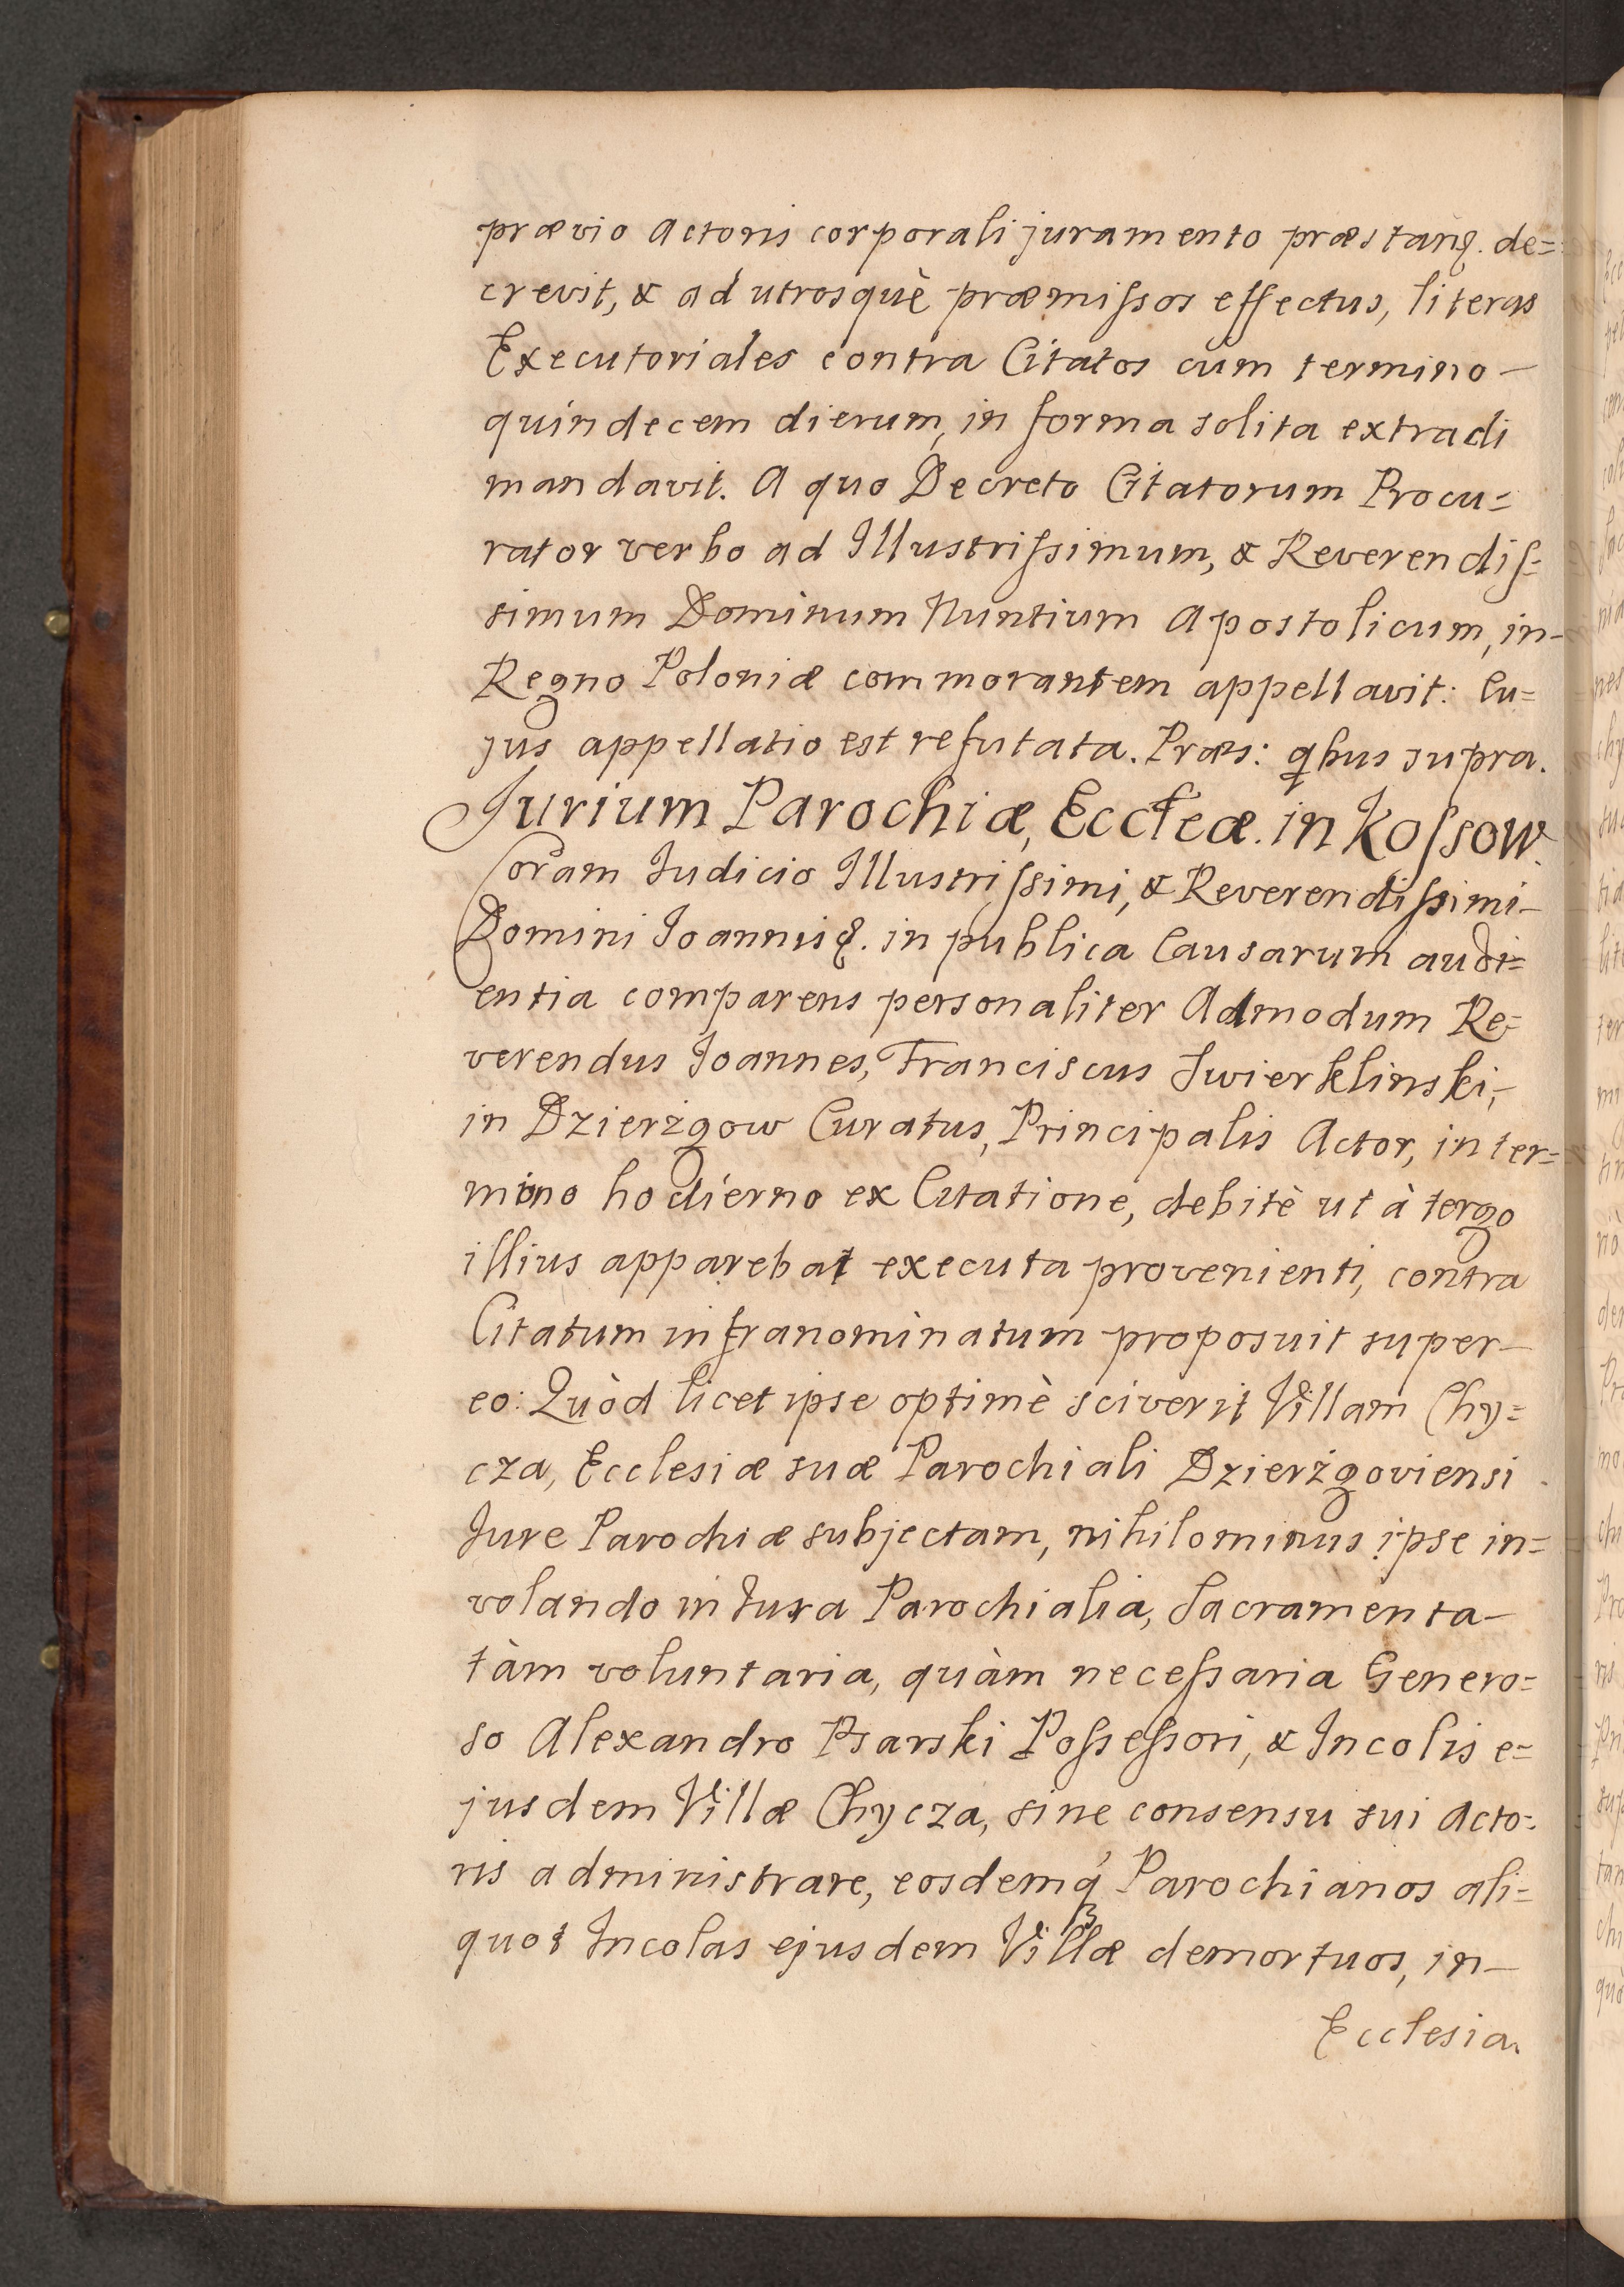 prævio Actoris corporali juramento præstanḑ. de=
crevit, & ad utrosquè præmiſsos effectus, literas
Executoriales contra Citatos cum termino—
quindecem dierum, in forma solita extradi
mandavit. A quo Decreto Citatorum Procu=
rator verbo ad Illustriſsimum, & Reverendiſ=
simum Dominum Nuntium Apostolicum, in—
Regno Poloniæ commorantem appellavit: Cu=
jus appellatio est refutata. Præs: qbus supra.
Jurium Parochiæ, Eccleæ. in Koſsow.
Coram Iudicio Illustriſsimi, & Reverendiſsimi—
Domini Ioannis&. in publica Causarum audi=
entia comparens personaliter Admodum Re=
verendus Ioannes, Franciscus Swierklinski,—
in Dzierżgow Curatus, Principalis Actor, in ter=
mino hodierno ex Citatione, debitè ut à tergo
illius apparebat executa provenienti, contra
Citatum infranominatum proposuit super—
eo: Quòd licet ipse optimè sciverit Villam Chy=
cza, Ecclesiæ suæ Parochiali Dzierżgoviensi
Jure Parochiæ subjectam, nihilominus ipse in=
volando in Jura Parochialia, Sacramenta—
tàm voluntaria, quàm neceſsaria Genero=
so Alexandro Psarski Poſseſsori, & Incolis e=
jusdem Villæ Chycza, sine consensu sui Acto=
ris administrare, eosdemq́ Parochianos ali=
quot Incolas ejusdem Villæ demortuos, in—
Ecclesia.